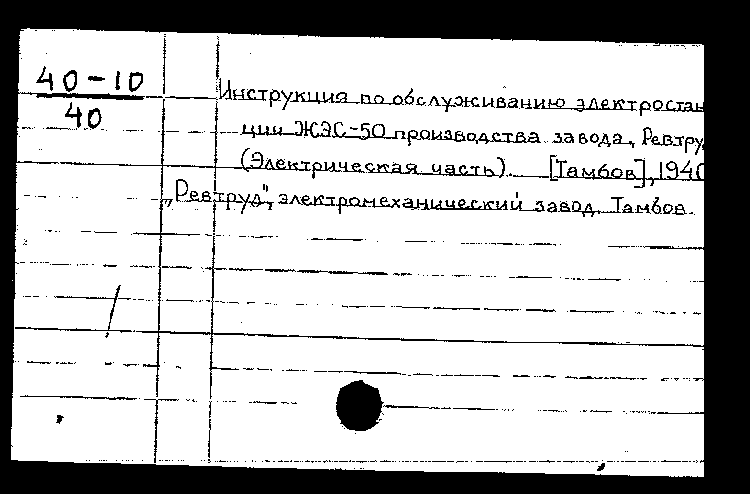 40-10
40
Инструкция по обслуживанию электростан
ции ЖЭС-50 производства завода „Ревтру
(Электрическая часть). [Тамбов], 1940
„Ревтруд", электромеханический завод. Тамбов.